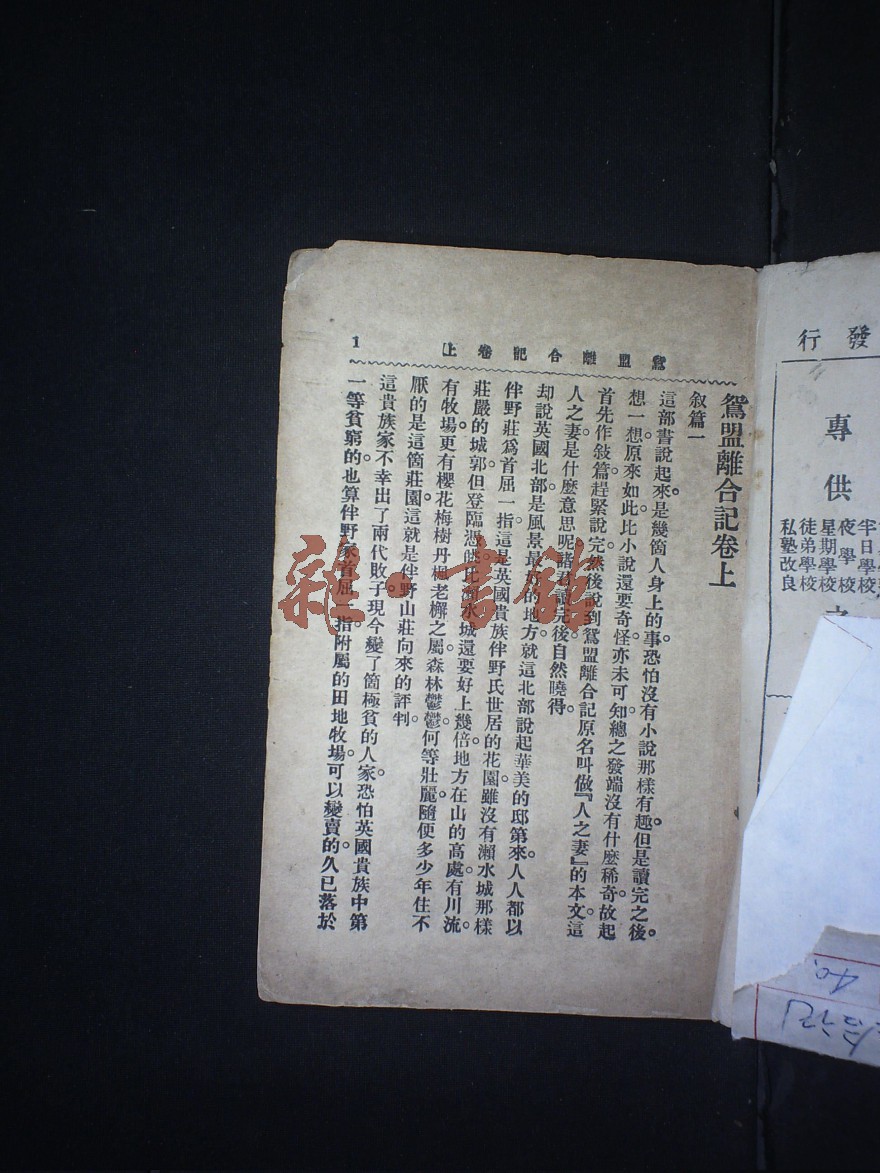 鴛盟離合記卷上
1
鴛盟離合記卷上
叙篇一
這部書說起來。是幾箇人身上的事恐怕沒有小說那樣有趣但是讀完之後。
想一想原來如此比小說還要奇怪亦未可知總之發端沒有什麼稀奇故起
首先作敍篇趕緊說完然後說到鴛盟離合記原名叫做『人之妻』的本文這
人之妻是什麼意思呢諸君讀完後自然曉得。
却說英國北部是風景最好的地方就這北部說起華美的邸第來。人人都以
伴野莊爲首屈一指這是英國貴族伴野氏世居的花園雖沒有瀨水城那樣
莊嚴的城郭但登臨憑眺比瀨水城還要好上幾倍地方在山的高處有川流。
有牧場更有櫻花梅樹丹楓老檞之屬森林鬱鬱何等壯麗隨便多少年住不
厭的是這箇莊園這就是伴野山莊向來的評判。
這貴族家不幸出了兩代敗子現今變了箇極貧的人家。恐怕英國貴族中第
一等貧窮的也算伴野家首屈一指附屬的田地牧場可以變賣的久已落於
雜·書館
發行
專供
半日學校
夜學校
星期學校
徒弟學校
私塾改良
之
40.